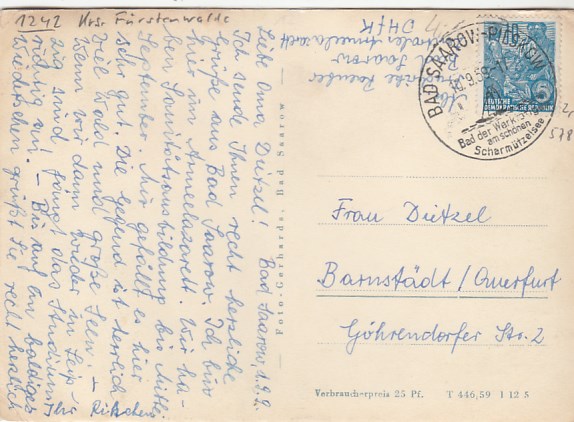 1242 Krsr Fürstenwalde
Liebe Oma Dietzel! Bad Saarow, 1.9.
Ich sende Ihnen recht herzliche
Grüße aus Bad Saarow. Ich bin
hier im Armeelazarett. Wir ha-
ben Sanitätsausbildung bis Mitte
September. Mir gefällt es hier
sehr gut. Die Gegend ist herrlich
viel Wald und große Seen. –
Wenn wir dann wieder in Leip-
zig sind, fängt das Studium
richtig an! – Bis auf ein baldiges
Wiedersehen grüßt Sie recht herzlich
Ihr
Foto-Gerhards, Bad Saarow
DHfK
Bad Saarow
BAD SAAROW-PIESKOW
Bad der Werktätigen
am schönen
Scharmützelsee
DEUTSCHE
DEMOKRATISCHE REPUBLIK
Frau Dietzel
Barnstädt/Querfurt
Göhrendorfer Str. 2
Verbraucherpreis 25 Pf. T 446,59 I 12 5